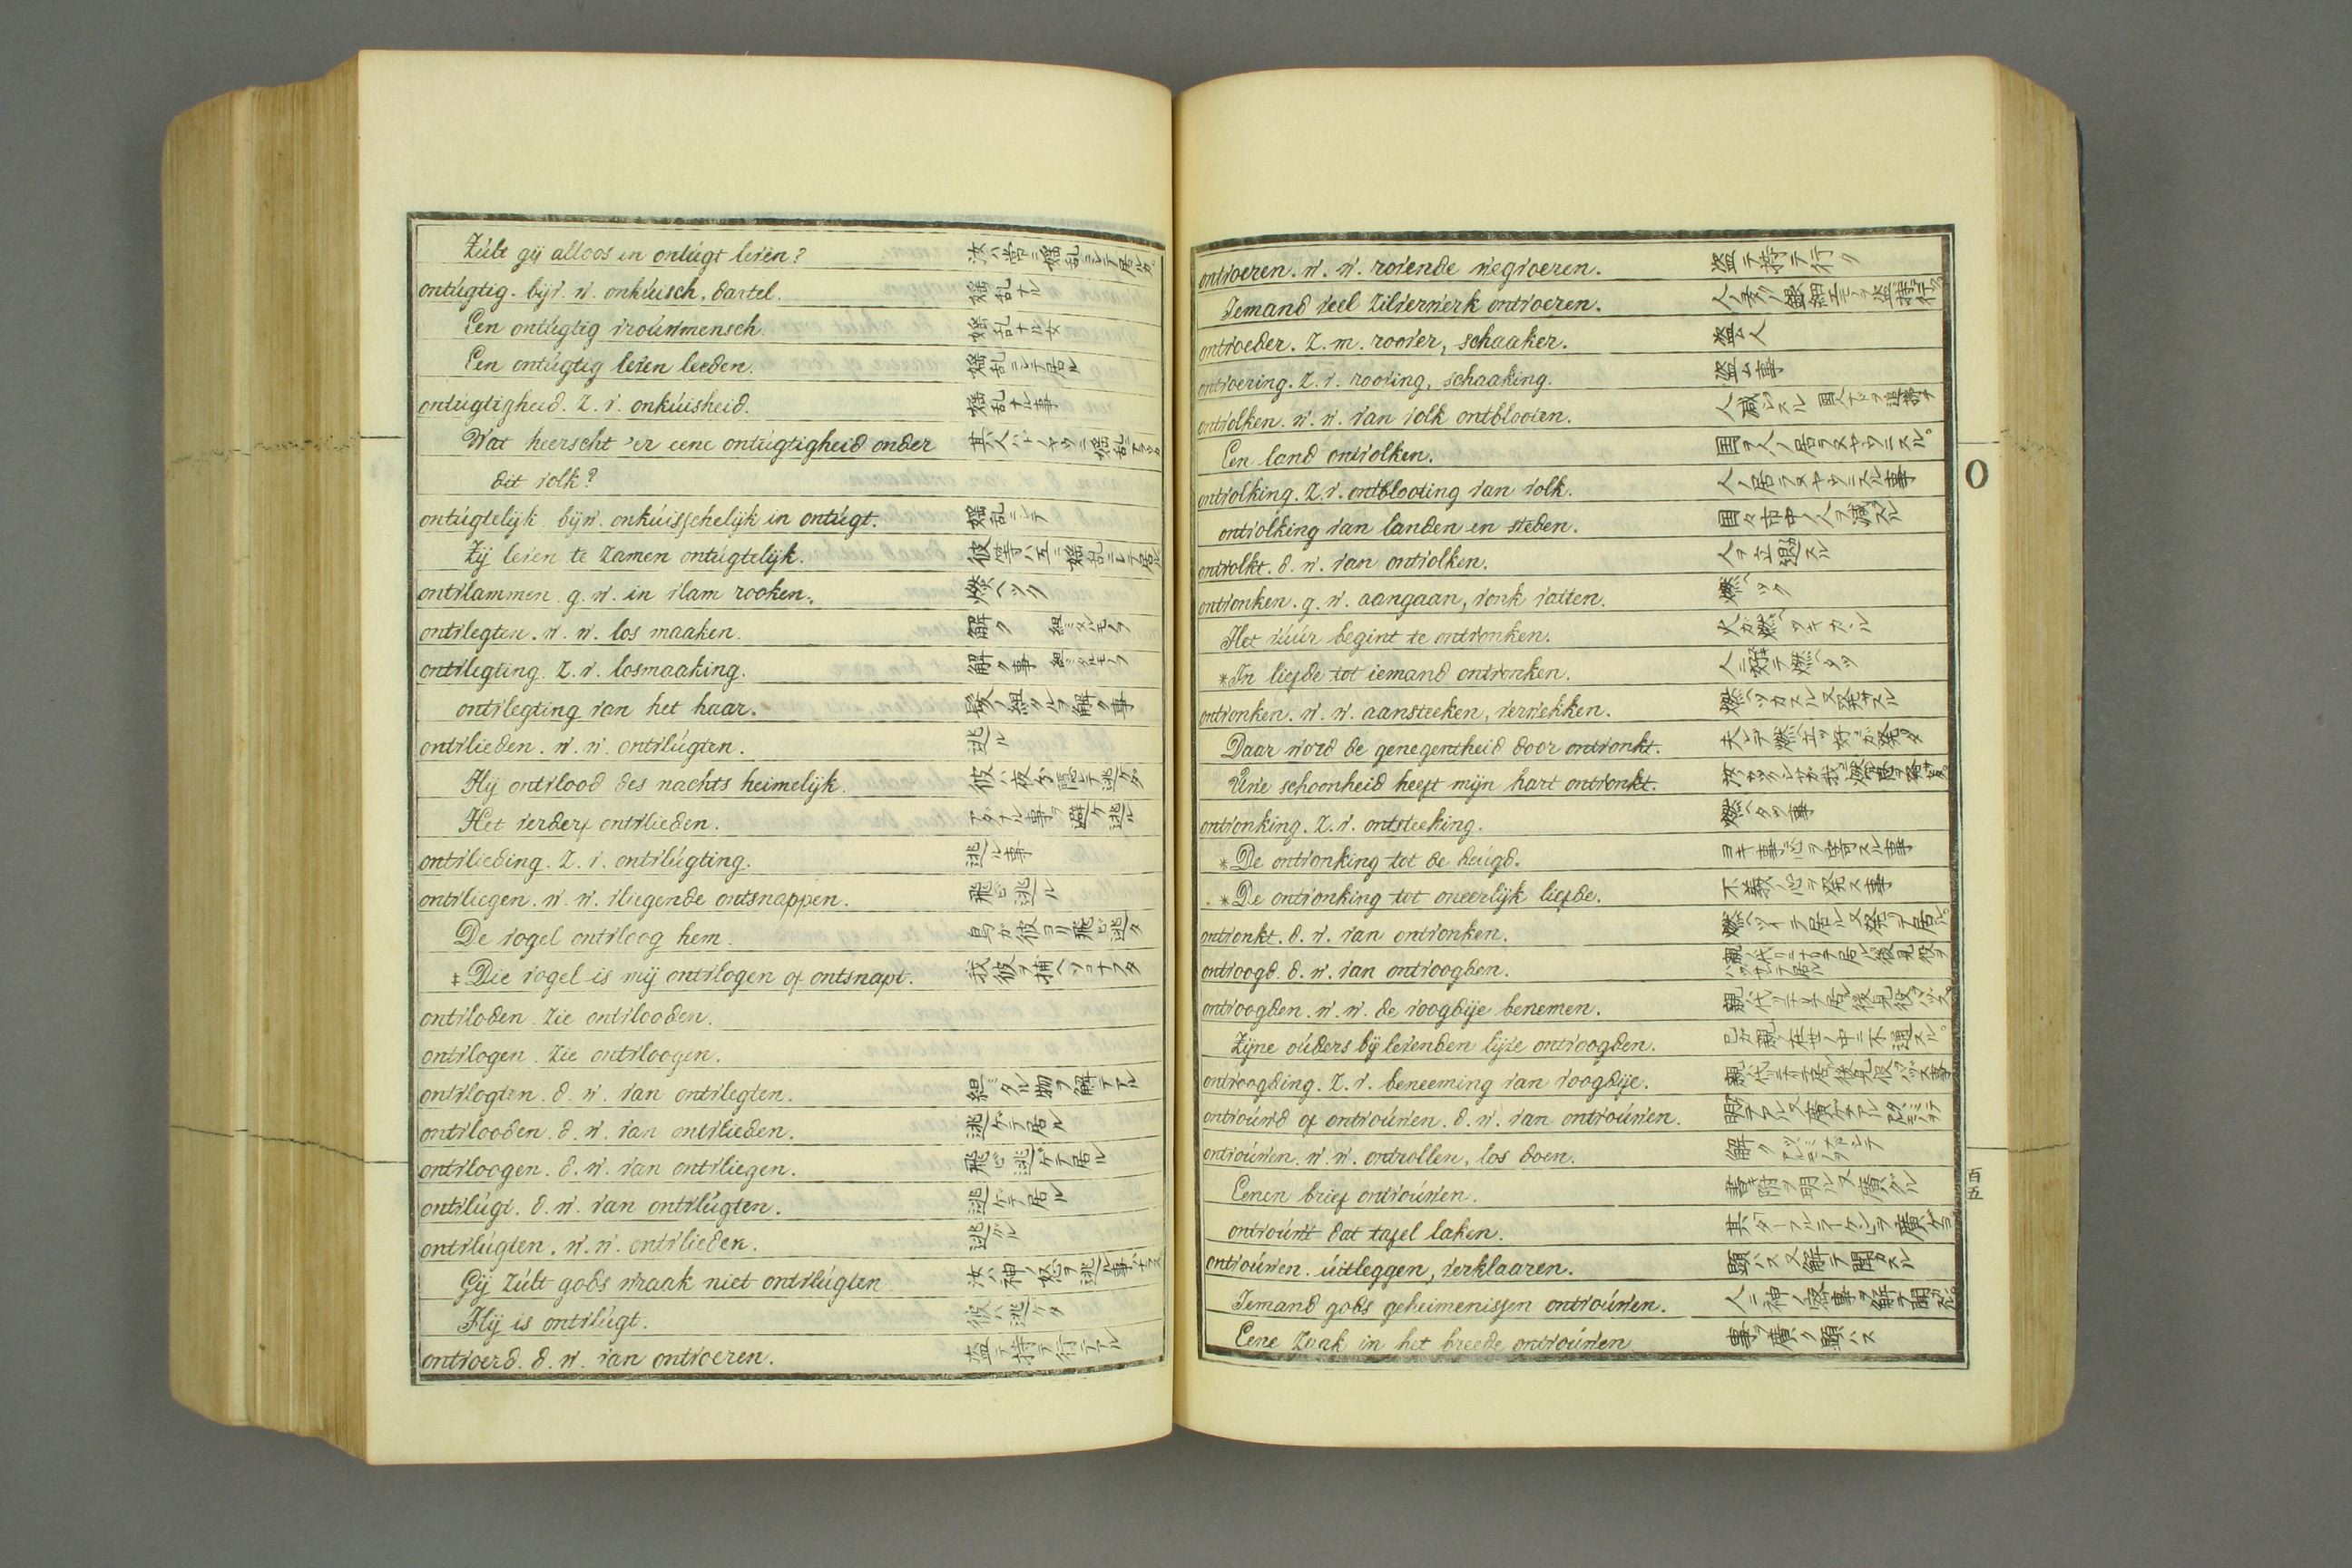 Zúlt gij altoos in ontúgt leven? 汝ハ常ニ婬乱ニシテ居ルカ
ontúgtig. bijv. w. onkúisch, dartel. 婬乱ナル
Een ontúgtig vroúwmensch. 婬乱ナル女
Een ontúgtig leven leeden. 婬乱ニシテ居ル
ontúgtigheid. Z. v. onkúisheid. 婬乱ナル事
Wat heerscht 'er eene ontúgtigheid onder 其人ハ 婬乱
dit volk?
ontúgtelijk bijw. onkúisschelijk in ontúgt. 婬乱ニシテ
Zij leven te zamen ontúgtelijk. 彼等ハ互ニ婬乱ニシテ居ル
ontvlammen. g. w. in vlam rooken. 燃ヘツク
ontvlegten. w. w. los maaken. 解ク 組ミタルモノヲ
ontvlegting. Z. v. losmaaking. 解ク事 組ミタルモノヲ
ontvlegting van het haar. 髪ノ組タルヲ解ク事
ontvlieden. w. w. ontvlúgten. 逃ル
Hij ontvlood des nachts heimelijk. 彼ハ夜分隠レテ逃ケタ
Het verderf ontvlieden. アダナル事ヲ避ケ逃ル
ontvlieding. Z. v. ontvlúgting. 逃ル事
ontvliegen. w. w. vliegende ontsnappen. 飛ビ逃ル
De vogel ontvloog hem. 鳥ガ彼ヨリ飛ビ逃タ
‡ Die vogel is mij ontvlogen of ontsnapt. 我彼ヲ捕ヘソコナフタ
ontvloden. Zie ontvlooden.
ontvlogen. Zie ontvloogen.
ontvlogten. d. w. van ontvlegten. 組ミタル物ヲ解テアル
ontvlooden. d. w. van ontvlieden. 逃ケテ居ル
ontvloogen. d. w. van ontvliegen. 飛ビ逃ケテ居ル
ontvlúgt. d. w. van ontvlúgten. 逃ケテ居ル
ontvlúgten. w. w. ontvlieden. 逃ル
Gij zúlt gods wraak niet ontvlúgten 汝ハ神ノ怒ヲ逃ル事
Hij is ontvlúgt. 彼ハ逃ケタ
ontvoerd. d. w. van ontvoeren. 盗テ持テ行テアル
ontvoeren. w. w. rovende wegvoeren. 盗テ持テ行ク
Iemand veel zilverwerk ontvoeren. 人ノ多クノ銀細工モノヲ盗ミ持行ク
ontvoeder. Z. m.roover, schaaker. 盗ム人
ontvoering. Z. v. rooving, schaaking. 盗ム事
ontvolken. w. w. van volk ontblooten. 人ヲ減ジスル
Een land ontvolken. 国ヲ人ノ居ラヌヤウニスル。
ontvolking. Z. v. ontblooting van volk. 人ノ居ラヌヤウニスル事
ontvolking van landen en steden. 国々市中ノ人ヲ減スル
ontvolkt. d. w. van ontvolken.
ontvonken. g. w. aangaan, vonk vatten. 燃ヘツク
Het vúúr begint te ontvonken. 火ガ燃ヘツキカヽル
*In liefde tot iemand ontvonken. 人ニ好テ燃ヘタツ
ontvonken. w. w. aansteeken, verwekken. 燃ヘツカスル又発サスル
Daar word de genegentheid door ontvonkt. 夫レデ燃立ツ好ガ発ツタ
Úwe schoonheid heeft mijn hart ontvonkt.
ontvonking. Z. v. ontsteeking. 燃ヘタツ事
*De ontvonking tot de deúgd. ヨキ事ニ心ヲ寄スル事
*De ontvonking tot oneerlijk liefde. 不義ノ心ヲ発ス事
ontvonkt. d. w. van ontvonken. 燃ヘツイテ居ル又発ツテ居ル。
ontvoogd. d. w. van ontvoogden.
ontvoogden. w. w. de voogdije benemen.
Zijne oúders bij levenden lijve ontvoogden.
ontvoogding. Z. v. beneeming van voogdije.
ontvoúwd of ontvoúwen. d. w. van ontvoúwen.
ontvoúwen. w. w. ontrollen, los doen. 解ク
Eenen brief ontvoúwen. 書附ヲ明ル又廣ゲル
ontvoúwt dat tafel laken. 其ターフルラーケンヲ廣ゲヨ
ontvoúwen. úitleggen, verklaaren. 顕ハス又解テ聞カスル
Iemand gods geheimenissen ontvoúwen. 人ニ神ノ密事ヲ解テ聞カスル。
Eene zaak in het breede ontvoúwen 事ヲ廣ク顕ハス
O
百五